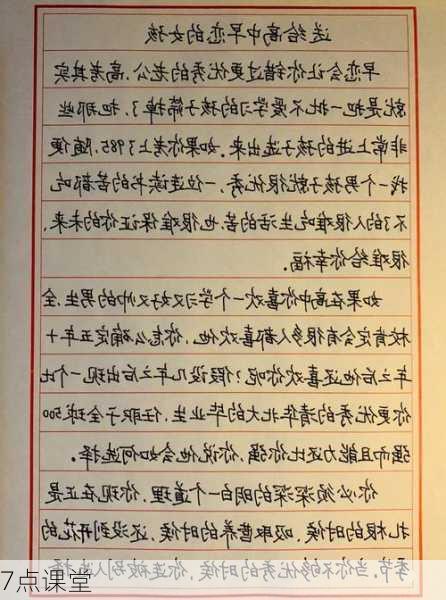 送给高中早恋的女孩
早恋会让你错过更优秀的老公，高考其实
就是把一批不爱学习的孩子筛掉了，把那些
非常上进的孩子选出来。如果你考上了985，随便
找一个男孩子就很优秀，一位连读书的苦都吃
不了的人很难吃生活的苦，也很难保证你的未来，
很难给你幸福。
如果在高中你喜欢一个学习又好又帅的男生，全
校肯定会有很多人都喜欢他，你怎么确定五年十
年之后他还喜欢你呢？假设几年之后出现一个比
你更优秀的清华北大的毕业生，任职于全球500
强而且能力还比你强，你说他会如何选择。
你必须深深的明白一个道理，你现在正是
扎根的时候，吸取营养的时候，还没到开花的
季节。当你不够优秀的时候，你连被别人选择
7点课堂